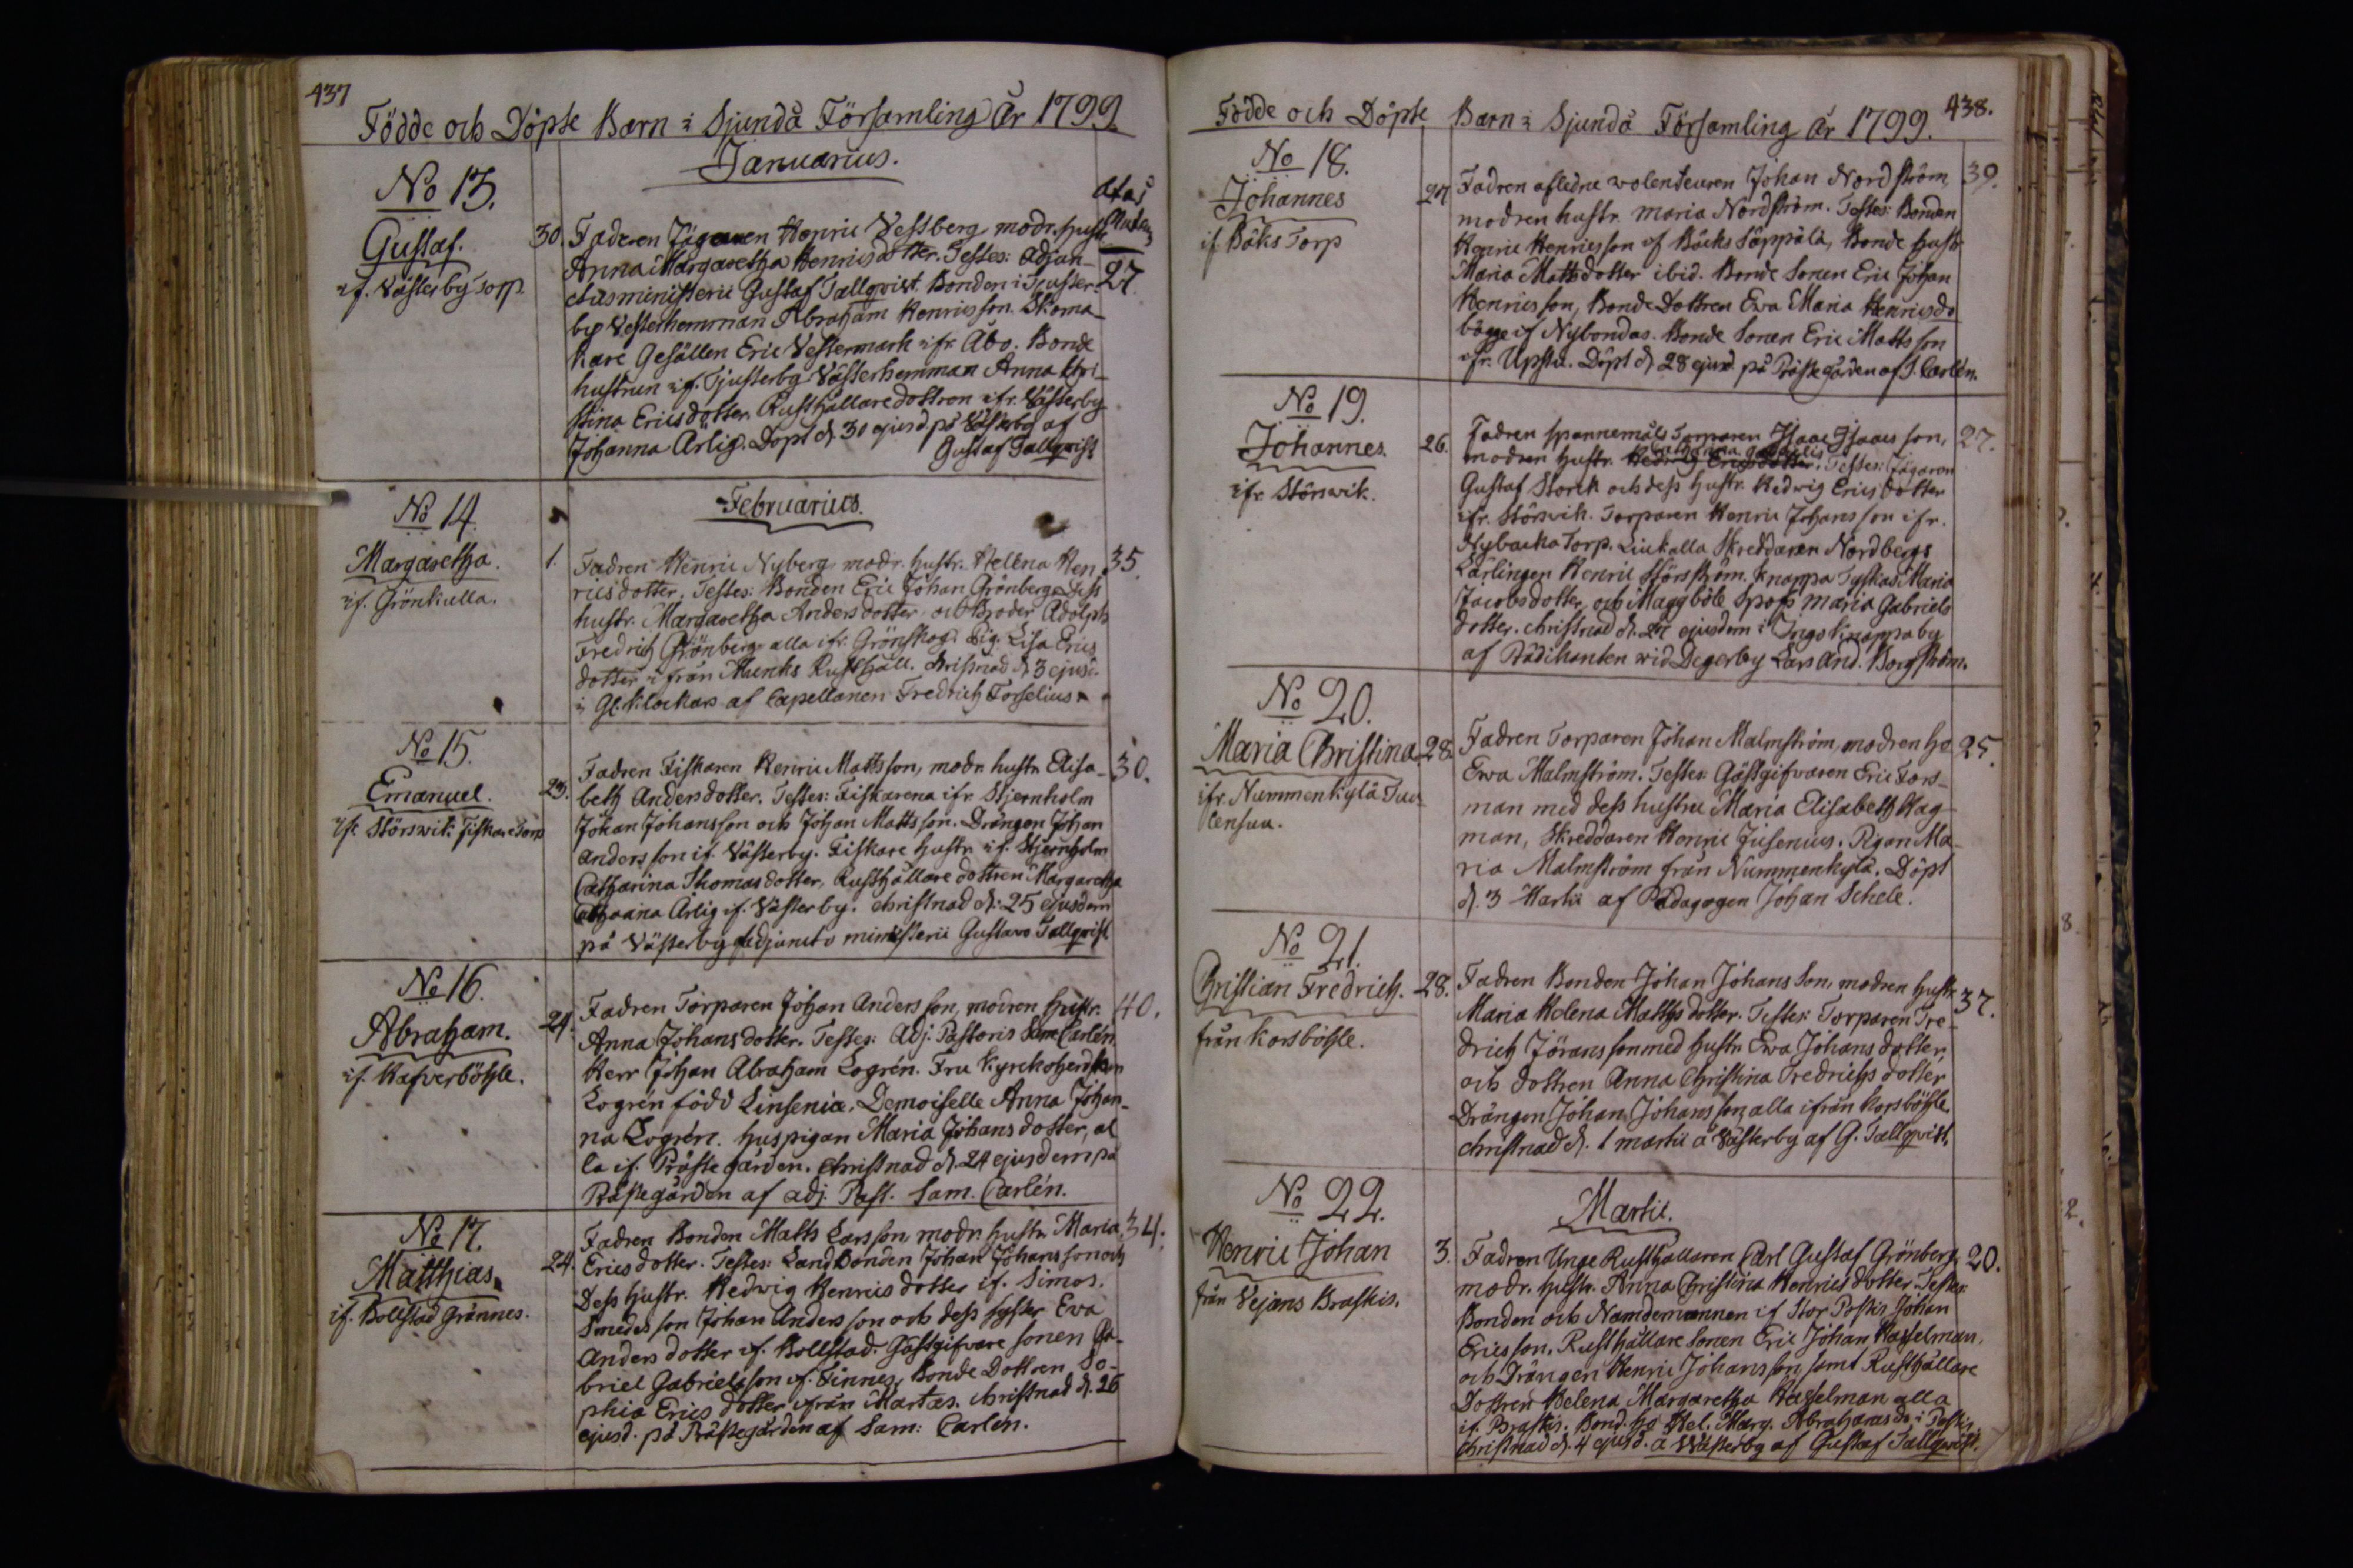 437
Födde och Döpte Barn i Sjundå Församling År 1799.
Januarius.
No 13.
Gustaf.
if. Västerby Torp.
30.
ætas
Matris
27.
Fadren Jägaren Henric Vestberg modr. hustr.
Anna Margaretha Henricsdotter. Testes: Adjun-
ctus ministerii Gustaf Tallqvist. Bonden i Tjuster-
by Vesterhemman Abraham Henricsson. Skoma-
kare Gesällen Eric Vestermark ifr. Åbo. Bonde
hustrun if. Tjusterby Västerhemman Anna Chri-
stina Ericsdotter. Rusthållaredottren ifr. Västerby
Johanna Ärlig. Döpt d. 30 ejusd. på Västerby af
Gustaf Tallqvist
Februarius.
No 14.
Margaretha.
if. Grönkulla.
1.
35.
Fadren Henric Nyberg modr. hustr. Helena Hen
ricsdotter. Testes: Bonden Eric Johan Grönberg Dess
hustr. Margaretha Andersdotter och Broder Adolph
Fredrich Grönberg alla ifr. Grönskog. Pig. Lisa Erics
dotter ifrån Munks Rusthåll. Christnad d. 3 ejusd.
i Gl. Klockars af Capellanen Fredrich Forselius.
No 15.
Emanuel.
ifr. Störswik Fiskare Torp
23.
30.
Fadren Fiskaren Henric Mattsson, modr hustr Elisa-
beth Andersdotter. Testes: Fiskarena ifr Stjernholm
Johan Johansson och Johan Mattsson. Drängen Johan
Andersson if. Västerby. Fiskare hustr. if. Stjernholm
Catharina Thomasdotter, Rusthållare dottren Margaretha
Catharina Ärlig if. Västerby. Christnad d. 25 ejusdem
på Västerby Adjuncto ministerii Gustavo Tallqvist
No 16.
Abraham.
if. Hafverböhle.
24.
40.
Fadren Torparen Johan Andersson, modren hustr.
Anna Johansdotter. Testes: Adj. Pastoris Sam Carlén
Herr Johan Abraham Logrén. Fru Kyrkoherdskan
Logrén född Linsenia. Demoiselle Anna Johan-
na Logrén. huspigan Maria Johansdotter, al
la if. Prästegården. Christnad d. 24 ejusdem på
Prästegården af Adj. Past. Sam. Carlén.
No 17.
Matthias.
if. Bollstad Grännes.
24.
34.
Fadren Bonden Matts Larsson modr. hustr Maria
Ericsdotter. Testes: Landbonden Johan Johansson och
Dess hustr. Hedwig Henricsdotter if. Simos.
Smeds son Johan Andersson och dess syster Eva
Andersdotter if. Bollstad. Gästgifvare sonen Ga-
briel Gabrielsson if. Finnes, Bonde Dottren So-
phia Ericsdotter ifrån Martas. Christnad d. 26
ejusd. på Prästegården af Sam: Carlén.
438.
Födde och Döpte Barn i Sjundå Församling År 1799.
No 18.
Johannes
if Bäks Torp
27
39.
Fadren afledne volenteuren Johan Nordström,
modren hustr. Maria Nordström. Testes: Bonden
Henric Henricsson if Bäcks Säppälä, Bonde hustr
Maria Mattsdotter ibid. Bonde Sonen Eric Johan
Henricsson, Bonde Dottren Ewa Maria Henricsdo
bägge if Nybondas. Bonde Sonen Eric Mattsson
ifr. Upstu. Döpt d 28 ejusd på Prästegården af S. Carlén.
No 19.
Johannes.
ifr. Störswik.
26.
27.
Fadren spannemåls Torparen Isaac Isaacsson,
Catharina Gabrielis
modren hustr. Hedwig Ericsdotter. Testes: Jägaren
Gustaf Storck och dess hustr. Hedwig Ericsdotter
ifr. Störswik. Torparen Henric Johansson ifr.
Nybacka Torp. Liukalla Skreddaren Nordbergs
Lärlingen Henric Störström. Knappa Tyskas Maria
Jacobsdotter och Maggböle Spofs Maria Gabriels
dotter. Christnad d. 27 ejusdem i Ingo Knappaby
af Prädikanten wid Degerby Lars And. Borgström.
No 20.
Maria Christina
ifr. Nummenkylä
28
25.
Fadren Torparen Johan Malmström, modren ho
Ewa Malmström. Testes: Gästgifvaren Eric Fors-
man med dess hustru Maria Elisabeth Hag-
man, Skreddaren Henric Jusenius. Pigan Ma-
ria Malmström från Nummenkylä. Döpt
d. 3 Martii af Pædagogen Johan Schele.
No 21.
Christian Fredrich.
från Korsböhle.
28.
37.
Fadren Bonden Johan Johansson, modren hustr
Maria Helena Matthsdotter. Testes: Torparen Fre-
drich Jöransson med hustr Ewa Johansdotter,
och dottren Anna Christina Fredrichsdotter
Drängen Johan Johansson, alla ifrån Korsböhle.
Christnad d. 1 martii å Västerby af G. Tallqvist.
Martii.
No 22.
Henric Johan
från Vejans Braskis.
3.
20.
Fadren Unge Rusthållaren Carl Gustaf Grönberg,
modr. hustr. Anna Christina Henricsdotter. Testes:
Bonden och Nämdemannen if Stor Postis Johan
Ericsson, Rusthållare Sonen Eric Johan Hasselman,
och Drängen Henric Johansson, samt Rusthållare
Dottren Helena Margaretha Hasselman alla
if. Braskis. Bond. ho Hel. Marg. Abrahamsdo i Postis.
Christnad d. 4 ejusd. å Västerby af Gustaf Tallqvist.